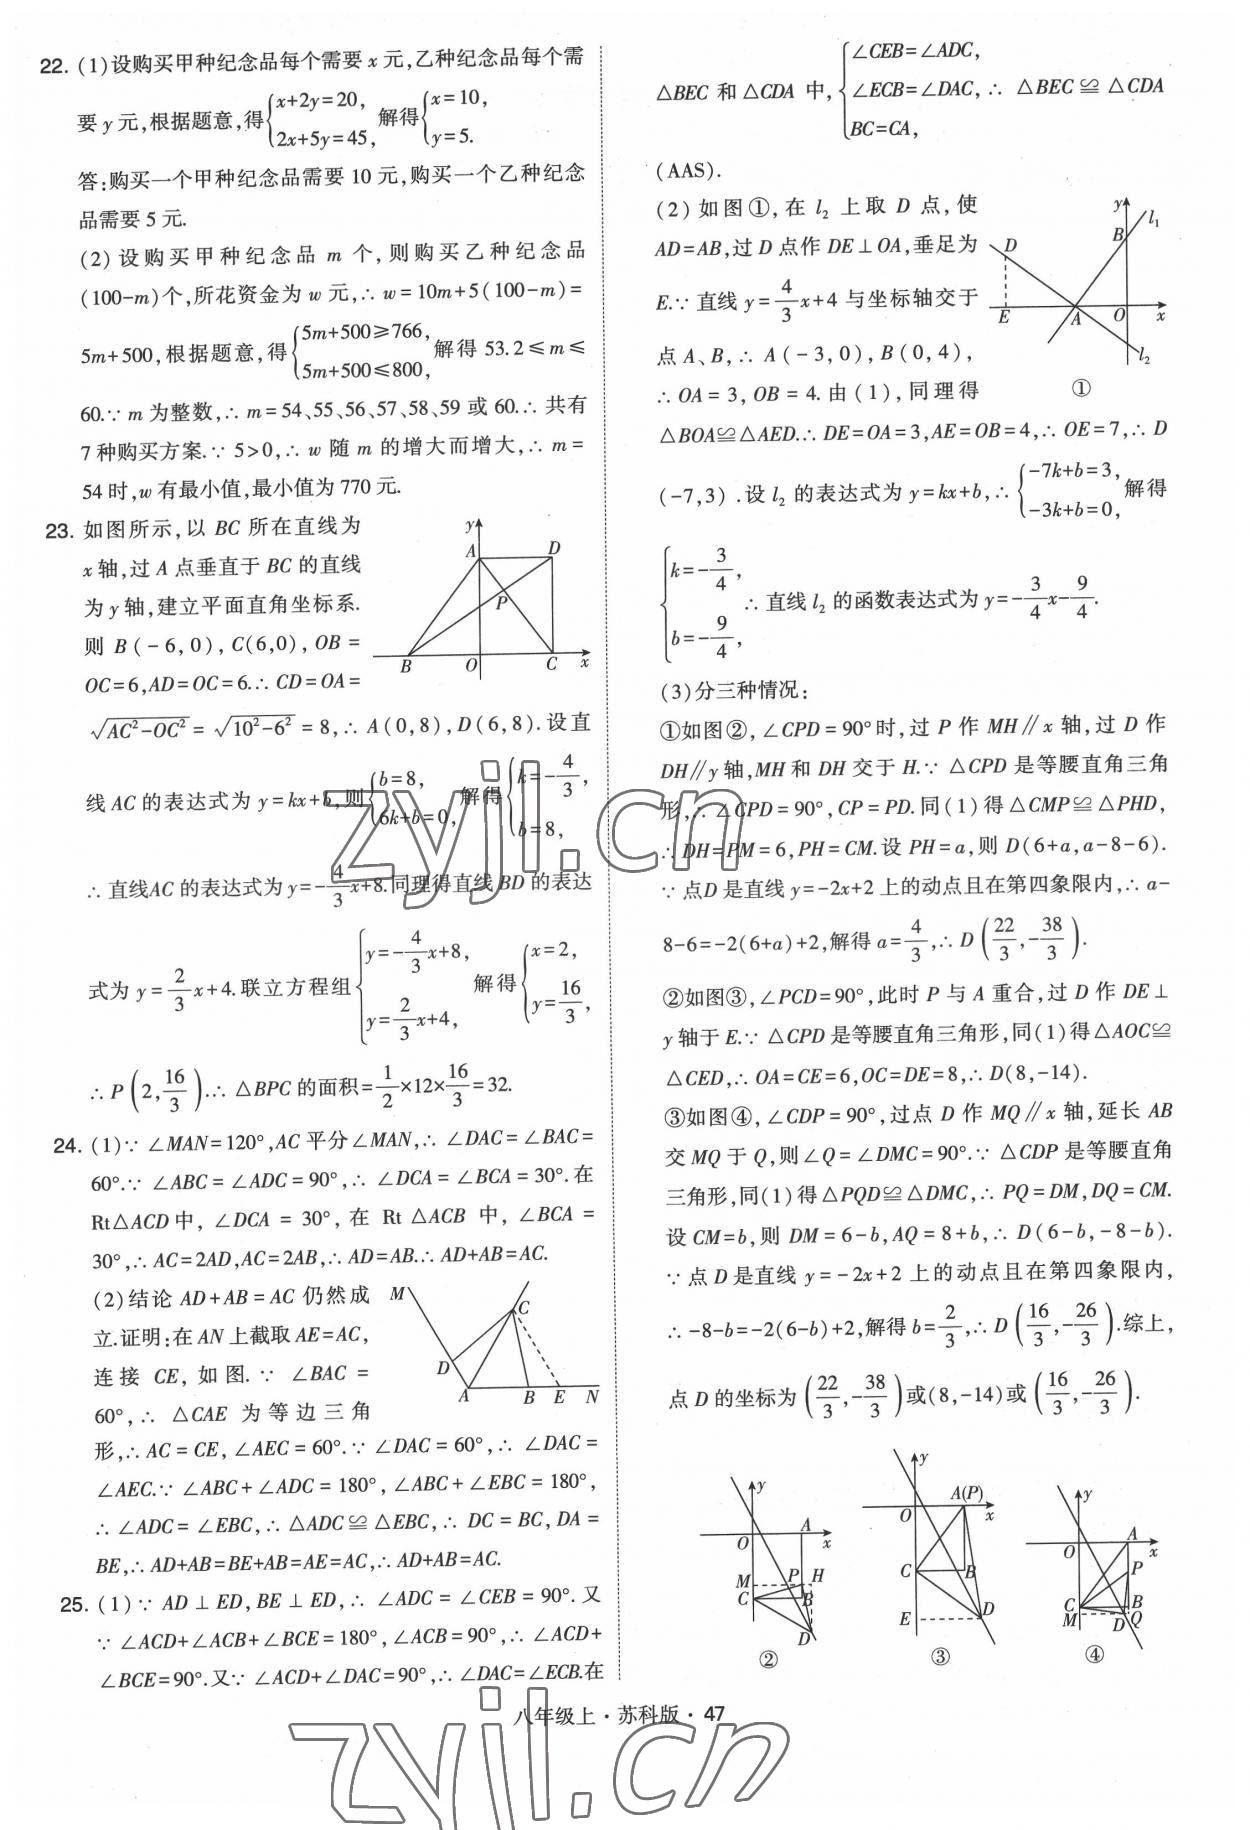 22. (1)设购买甲种纪念品每个需要 x 元,乙种纪念品每个需
要 y 元,根据题意,得{x+2y=20, 2x+5y=45, 解得{x=10, y=5.
答:购买一个甲种纪念品需要 10 元,购买一个乙种纪念
品需要 5 元.
(2)设购买甲种纪念品 m 个,则购买乙种纪念品
(100-m)个,所花资金为 w 元,∴ w=10m+5(100-m)=
5m+500,根据题意,得{5m+500≥766, 5m+500≤800, 解得 53.2≤m≤
60.∵ m 为整数,∴ m=54、55、56、57、58、59 或 60.∴ 共有
7 种购买方案.∵ 5>0,∴ w 随 m 的增大而增大,∴ m=
54 时,w 有最小值,最小值为 770 元.
23. 如图所示,以 BC 所在直线为
x 轴,过 A 点垂直于 BC 的直线
为 y 轴,建立平面直角坐标系.
则 B(-6,0),C(6,0),OB=
OC=6,AD=OC=6.∴ CD=OA=
√(AC²-OC²)=√(10²-6²)=8,∴ A(0,8),D(6,8).设直
线 AC 的表达式为 y=kx+b,则{b=8, 6k+b=0, 解得{k=-4/3, b=8,
∴ 直线AC 的表达式为 y=-4/3x+8.同理得直线 BD 的表达
式为 y=2/3x+4.联立方程组{y=-4/3x+8, y=2/3x+4, 解得{x=2, y=16/3,
∴ P(2,16/3).∴ △BPC 的面积=1/2×12×16/3=32.
24. (1)∵ ∠MAN=120°,AC 平分∠MAN,∴ ∠DAC=∠BAC=
60°.∵ ∠ABC=∠ADC=90°,∴ ∠DCA=∠BCA=30°.在
Rt△ACD中,∠DCA=30°,在 Rt △ACB 中,∠BCA=
30°,∴ AC=2AD,AC=2AB,∴ AD=AB.∴ AD+AB=AC.
(2)结论 AD+AB=AC 仍然成
立.证明:在 AN 上截取 AE=AC,
连接 CE,如图.∵ ∠BAC=
60°,∴ △CAE 为等边三角
形,∴ AC=CE,∠AEC=60°.∵ ∠DAC=60°,∴ ∠DAC=
∠AEC.∵ ∠ABC+∠ADC=180°,∠ABC+∠EBC=180°,
∴ ∠ADC=∠EBC,∴ △ADC≌△EBC,∴ DC=BC,DA=
BE,∴ AD+AB=BE+AB=AE=AC,∴ AD+AB=AC.
25. (1)∵ AD⊥ED,BE⊥ED,∴ ∠ADC=∠CEB=90°.又
∵ ∠ACD+∠ACB+∠BCE=180°,∠ACB=90°,∴ ∠ACD+
∠BCE=90°.又∵ ∠ACD+∠DAC=90°,∴ ∠DAC=∠ECB.在
y
A
D
P
B
O
C
x
M
C
D
A
B
E
N
△BEC 和△CDA 中,{∠CEB=∠ADC, ∠ECB=∠DAC, BC=CA, ∴ △BEC≌△CDA
(AAS).
(2)如图①,在 l₂ 上取 D 点,使
AD=AB,过 D 点作 DE⊥OA,垂足为
E.∵ 直线 y=4/3x+4 与坐标轴交于
点 A、B,∴ A(-3,0),B(0,4),
∴ OA=3,OB=4.由(1),同理得
△BOA≌△AED.∴ DE=OA=3,AE=OB=4,∴ OE=7,∴ D
(-7,3).设 l₂ 的表达式为 y=kx+b,∴{-7k+b=3, -3k+b=0, 解得
{k=-3/4, b=-9/4, ∴ 直线 l₂ 的函数表达式为 y=-3/4x-9/4.
(3)分三种情况:
①如图②,∠CPD=90°时,过 P 作 MH∥x 轴,过 D 作
DH∥y 轴,MH 和 DH 交于 H.∵ △CPD 是等腰直角三角
形,∴ ∠CPD=90°,CP=PD.同(1)得△CMP≌△PHD,
∴ DH=PM=6,PH=CM.设 PH=a,则 D(6+a,a-8-6).
∵ 点D 是直线 y=-2x+2 上的动点且在第四象限内,∴ a-
8-6=-2(6+a)+2,解得 a=4/3,∴ D(22/3,-38/3).
②如图③,∠PCD=90°,此时 P 与 A 重合,过 D 作 DE⊥
y 轴于 E.∵ △CPD 是等腰直角三角形,同(1)得△AOC≌
△CED,∴ OA=CE=6,OC=DE=8,∴ D(8,-14).
③如图④,∠CDP=90°,过点 D 作 MQ∥x 轴,延长 AB
交 MQ 于 Q,则∠Q=∠DMC=90°.∵ △CDP 是等腰直角
三角形,同(1)得△PQD≌△DMC,∴ PQ=DM,DQ=CM.
设 CM=b,则 DM=6-b,AQ=8+b,∴ D(6-b,-8-b).
∵ 点 D 是直线 y=-2x+2 上的动点且在第四象限内,
∴ -8-b=-2(6-b)+2,解得 b=2/3,∴ D(16/3,-26/3).综上,
点 D 的坐标为(22/3,-38/3)或(8,-14)或(16/3,-26/3).
y
l₁
B
D
E
A
O
x
l₂
①
y
A
O
x
M
P
H
C
B
D
②
y
A(P)
O
x
C
B
E
D
③
y
A
O
x
P
C
B
M
D
Q
④
八年级上·苏科版·47
zyjl.cn
zyjl.cn